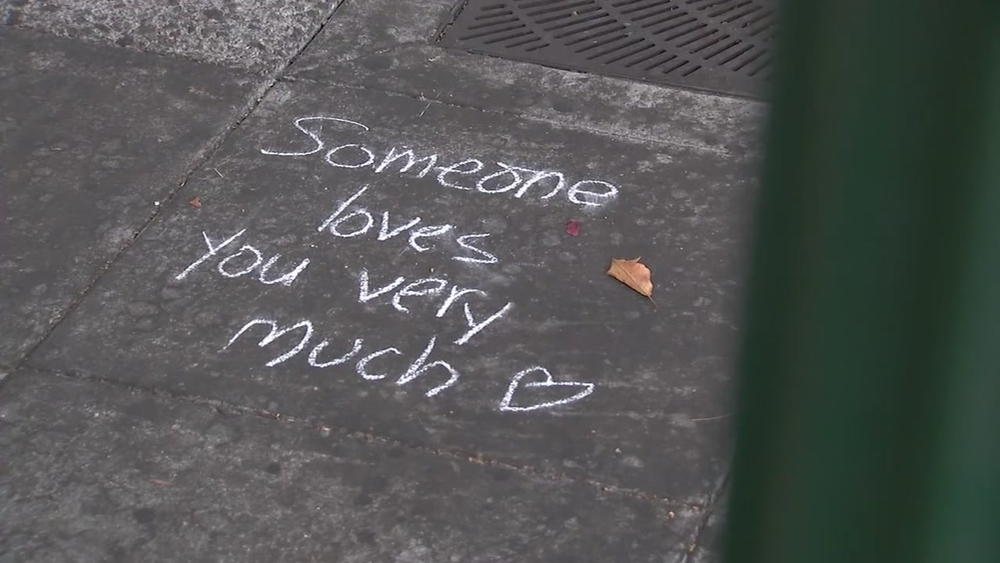 Someone
loves
you very
much ♡